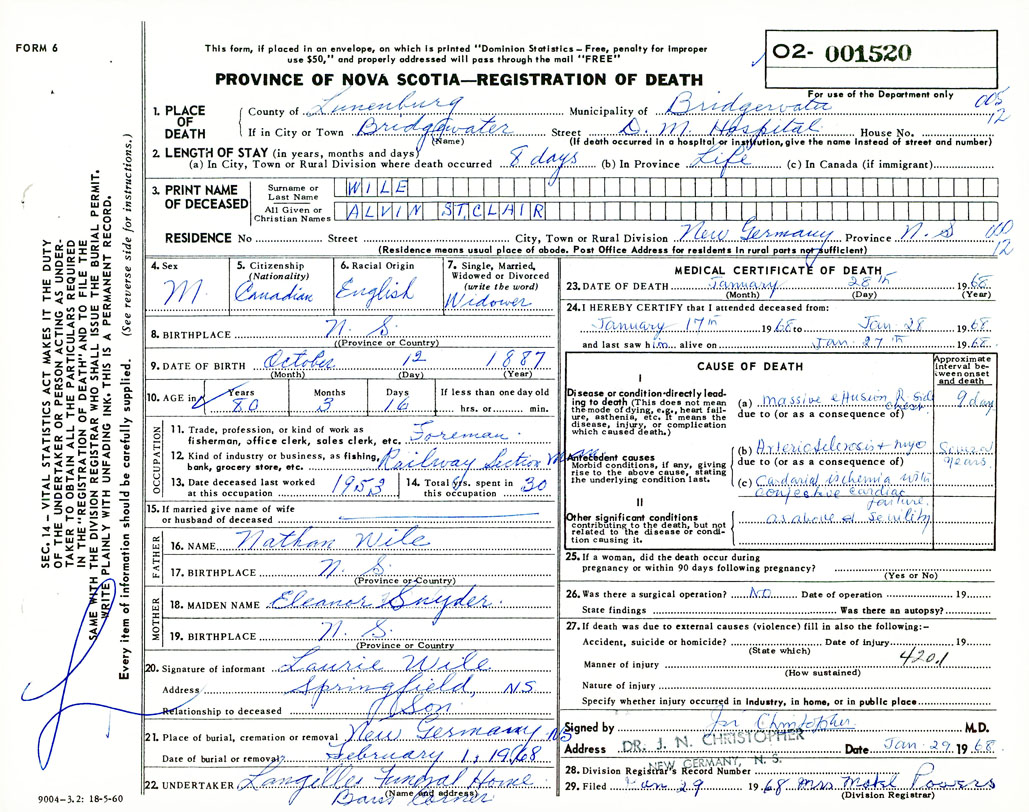 FORM 6
This form, if placed in an envelope, on which is printed "Dominion Statistics – Free, penalty for improper
use $50," and properly addressed will pass through the mail "FREE"
PROVINCE OF NOVA SCOTIA—REGISTRATION OF DEATH
02- 001520
For use of the Department only
005
12
1. PLACE OF DEATH
County of Lunenburg Municipality of Bridgewater
If in City or Town Bridgewater Street D. M. Hospital House No.
(Name) (If death occurred in a hospital or institution, give the name instead of street and number)
2. LENGTH OF STAY (in years, months and days)
(a) In City, Town or Rural Division where death occurred 8 days (b) In Province Life (c) In Canada (if immigrant)
3. PRINT NAME OF DECEASED
Surname or Last Name WILE
All Given or Christian Names ALVIN ST. CLAIR
RESIDENCE No Street City, Town or Rural Division New Germany Province N. S
(Residence means usual place of abode. Post Office Address for residents in rural parts not sufficient)
000
12
4. Sex M.
5. Citizenship (Nationality) Canadian
6. Racial Origin English
7. Single, Married, Widowed or Divorced (write the word) Widower
8. BIRTHPLACE N. S.
(Province or Country)
9. DATE OF BIRTH October 12 1887
(Month) (Day) (Year)
10. AGE in Years 80 Months 3 Days 16 If less than one day old hrs. or min.
OCCUPATION
11. Trade, profession, or kind of work as
fisherman, office clerk, sales clerk, etc. Foreman
12. Kind of industry or business, as fishing,
bank, grocery store, etc. Railway Section Man
13. Date deceased last worked at this occupation 1953
14. Total yrs. spent in this occupation 30
15. If married give name of wife
or husband of deceased
FATHER
16. NAME Nathan Wile
17. BIRTHPLACE N. S.
(Province or Country)
MOTHER
18. MAIDEN NAME Eleanor Snyder
19. BIRTHPLACE N. S.
(Province or Country
20. Signature of informant Laurie Wile
Address Springfield, N.S
Relationship to deceased Son
21. Place of burial, cremation or removal New Germany NS
Date of burial or removal February 1, 1968
22. UNDERTAKER Langilles Funeral Home
(Name and address) Corner
9004—3.2: 18-5-60
MEDICAL CERTIFICATE OF DEATH
23. DATE OF DEATH January 28th 1968
(Month) (Day) (Year)
24. I HEREBY CERTIFY that I attended deceased from:
January 17th 1968 to Jan. 28 1968
and last saw him alive on Jan. 27th 1968
CAUSE OF DEATH
Approximate interval between onset and death
I
Disease or condition directly leading to death (This does not mean the mode of dying, e.g., heart failure, asthenia, etc. It means the disease, injury, or complication which caused death.)
(a) massive effusion R side chest 9 days
due to (or as a consequence of)
Antecedent causes
Morbid conditions, if any, giving rise to the above cause, stating the underlying condition last.
(b) Arteriosclerosis + myo Several years
due to (or as a consequence of)
(c) Cardarial ischemia with
congestive cardiac
failure
II
Other significant conditions contributing to the death, but not related to the disease or condition causing it.
as above & senility
25. If a woman, did the death occur during
pregnancy or within 90 days following pregnancy?
(Yes or No)
26. Was there a surgical operation? NO Date of operation 19
State findings Was there an autopsy?
27. If death was due to external causes (violence) fill in also the following:-
Accident, suicide or homicide? Date of injury 19
(State which)
4201
Manner of injury
(How sustained)
Nature of injury
Specify whether injury occurred in Industry, in home, or in public place
Signed by Jn Christopher M.D.
Address DR. J. N. CHRISTOPHER Date Jan. 29 1968
NEW GERMANY, N. S.
28. Division Registrar's Record Number
29. Filed Jan 29 1968 Mrs Powers
(Division Registrar)
SEC. 14 – VITAL STATISTICS ACT MAKES IT THE DUTY
OF THE UNDERTAKER OR PERSON ACTING AS UNDER-
TAKER TO OBTAIN ALL THE PARTICULARS REQUIRED
IN THE "REGISTRATION OF DEATH" AND TO FILE THE
SAME WITH THE DIVISION REGISTRAR WHO SHALL ISSUE THE BURIAL PERMIT.
WRITE PLAINLY WITH UNFADING INK. THIS IS A PERMANENT RECORD.
Every item of information should be carefully supplied. (See reverse side for instructions.)